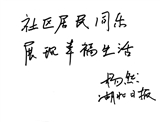 社区居民同乐
展现幸福生活
杨然
湖北日报